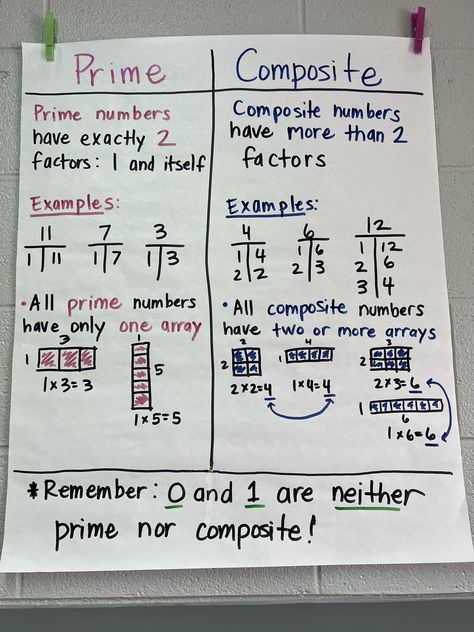 Prime
Prime numbers
have exactly 2
factors: 1 and itself
Examples:
11
1 11
7
1 7
3
1 3
• All prime numbers
have only one array
3
1
1 x 3 = 3
1
5
1 x 5 = 5
Composite
Composite numbers
have more than 2
factors
Examples:
4
1 4
2 2
6
1 6
2 3
12
1 12
2 6
3 4
• All composite numbers
have two or more arrays
2
2
2 x 2 = 4
4
1
1 x 4 = 4
3
2
2 x 3 = 6
1
6
1 x 6 = 6
*Remember: 0 and 1 are neither
prime nor composite!